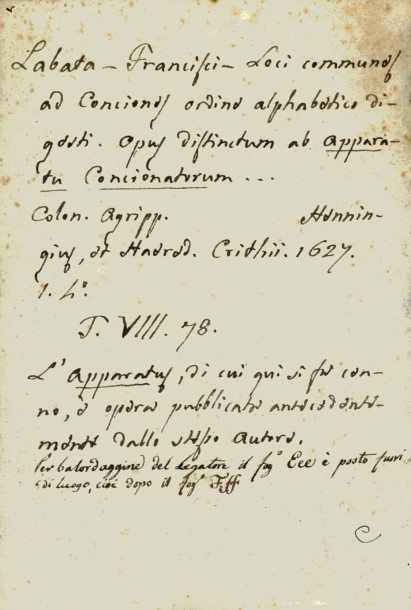 Labata - Francisci - Loci communes
ad Conciones ordine alphabetico di-
gesti. Opus distinctum ab Appara-
tu Concionatorum ...
Colon. Agripp. Hennin-
gius, et Haered. Crithii. 1627.
1. 4º.
T. VIII. 78.
L' Apparatus, di cui qui si fà cen-
no, è opera pubblicata antecedente-
mente dallo stesso Autore.
Per balordaggine del Legatore il fogº Eee è posto fuori
di luogo, cioè dopo il fogº Fff
C